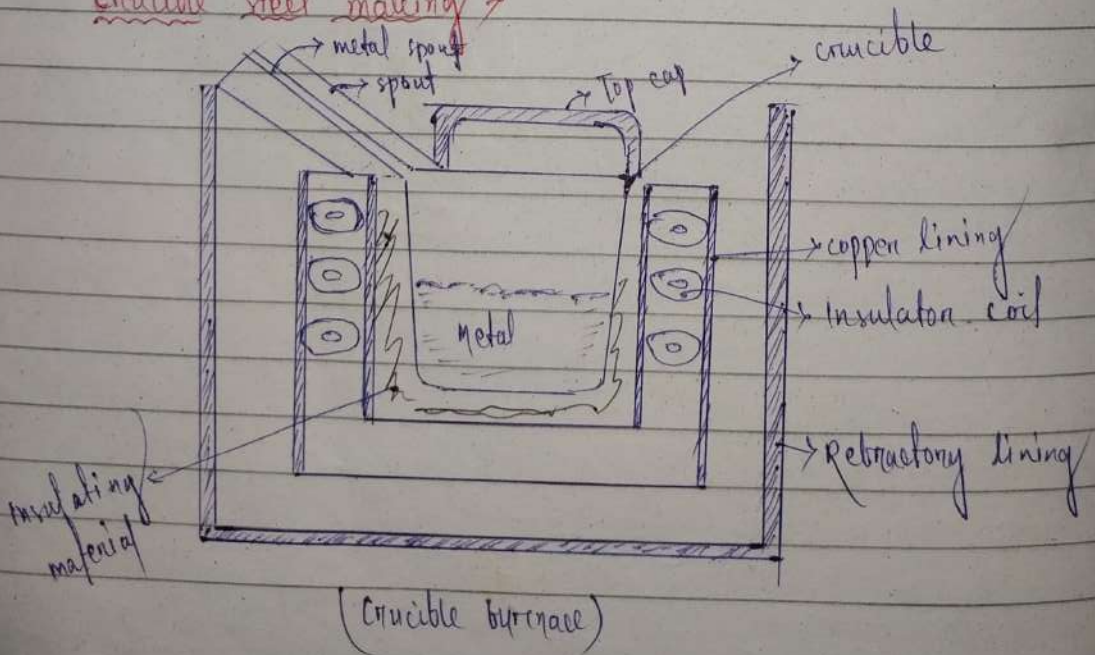 Crucible steel making →
metal spout
spout
Top cap
crucible
metal
copper lining
Insulator coil
Refractory lining
insulating
material
(Crucible furnace)